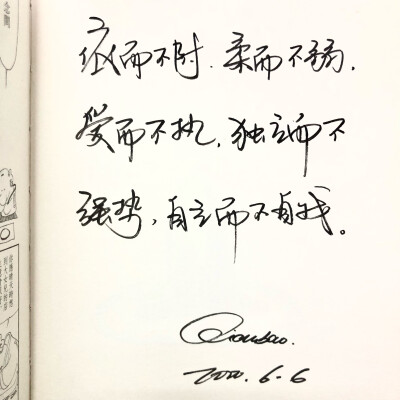 依而不附.柔而不弱.
爱而不执,独立而不
强势,自立而不自我。
2020.6-6